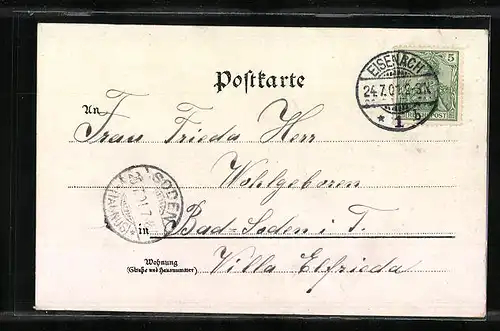 Postkarte
EISENACH
24.7.01. 2-3N.
* 1 b
5
An
Frau Frieda Herr
Wohlgeboren
SODEN
(TAUNUS)
in Bad-Soden i. T.
Wohnung
(Straße und Hausnummer)
Villa Elfrieda